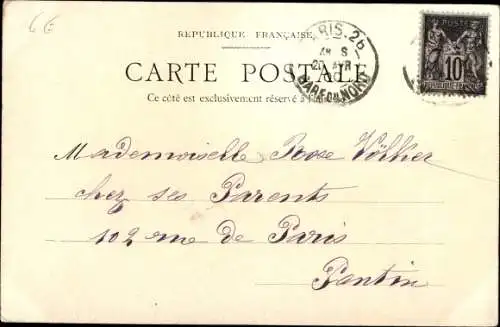 6E
REPUBLIQUE FRANÇAISE
PARIS. 26
20 AVR
GARE DU NORD
POSTE
10
REPUBLIQUE FRANÇAISE
CARTE POSTALE
Ce côté est exclusivement réservé à
Mademoiselle Rose Völker
chez ses Parents
102 rue de Paris
Pantin